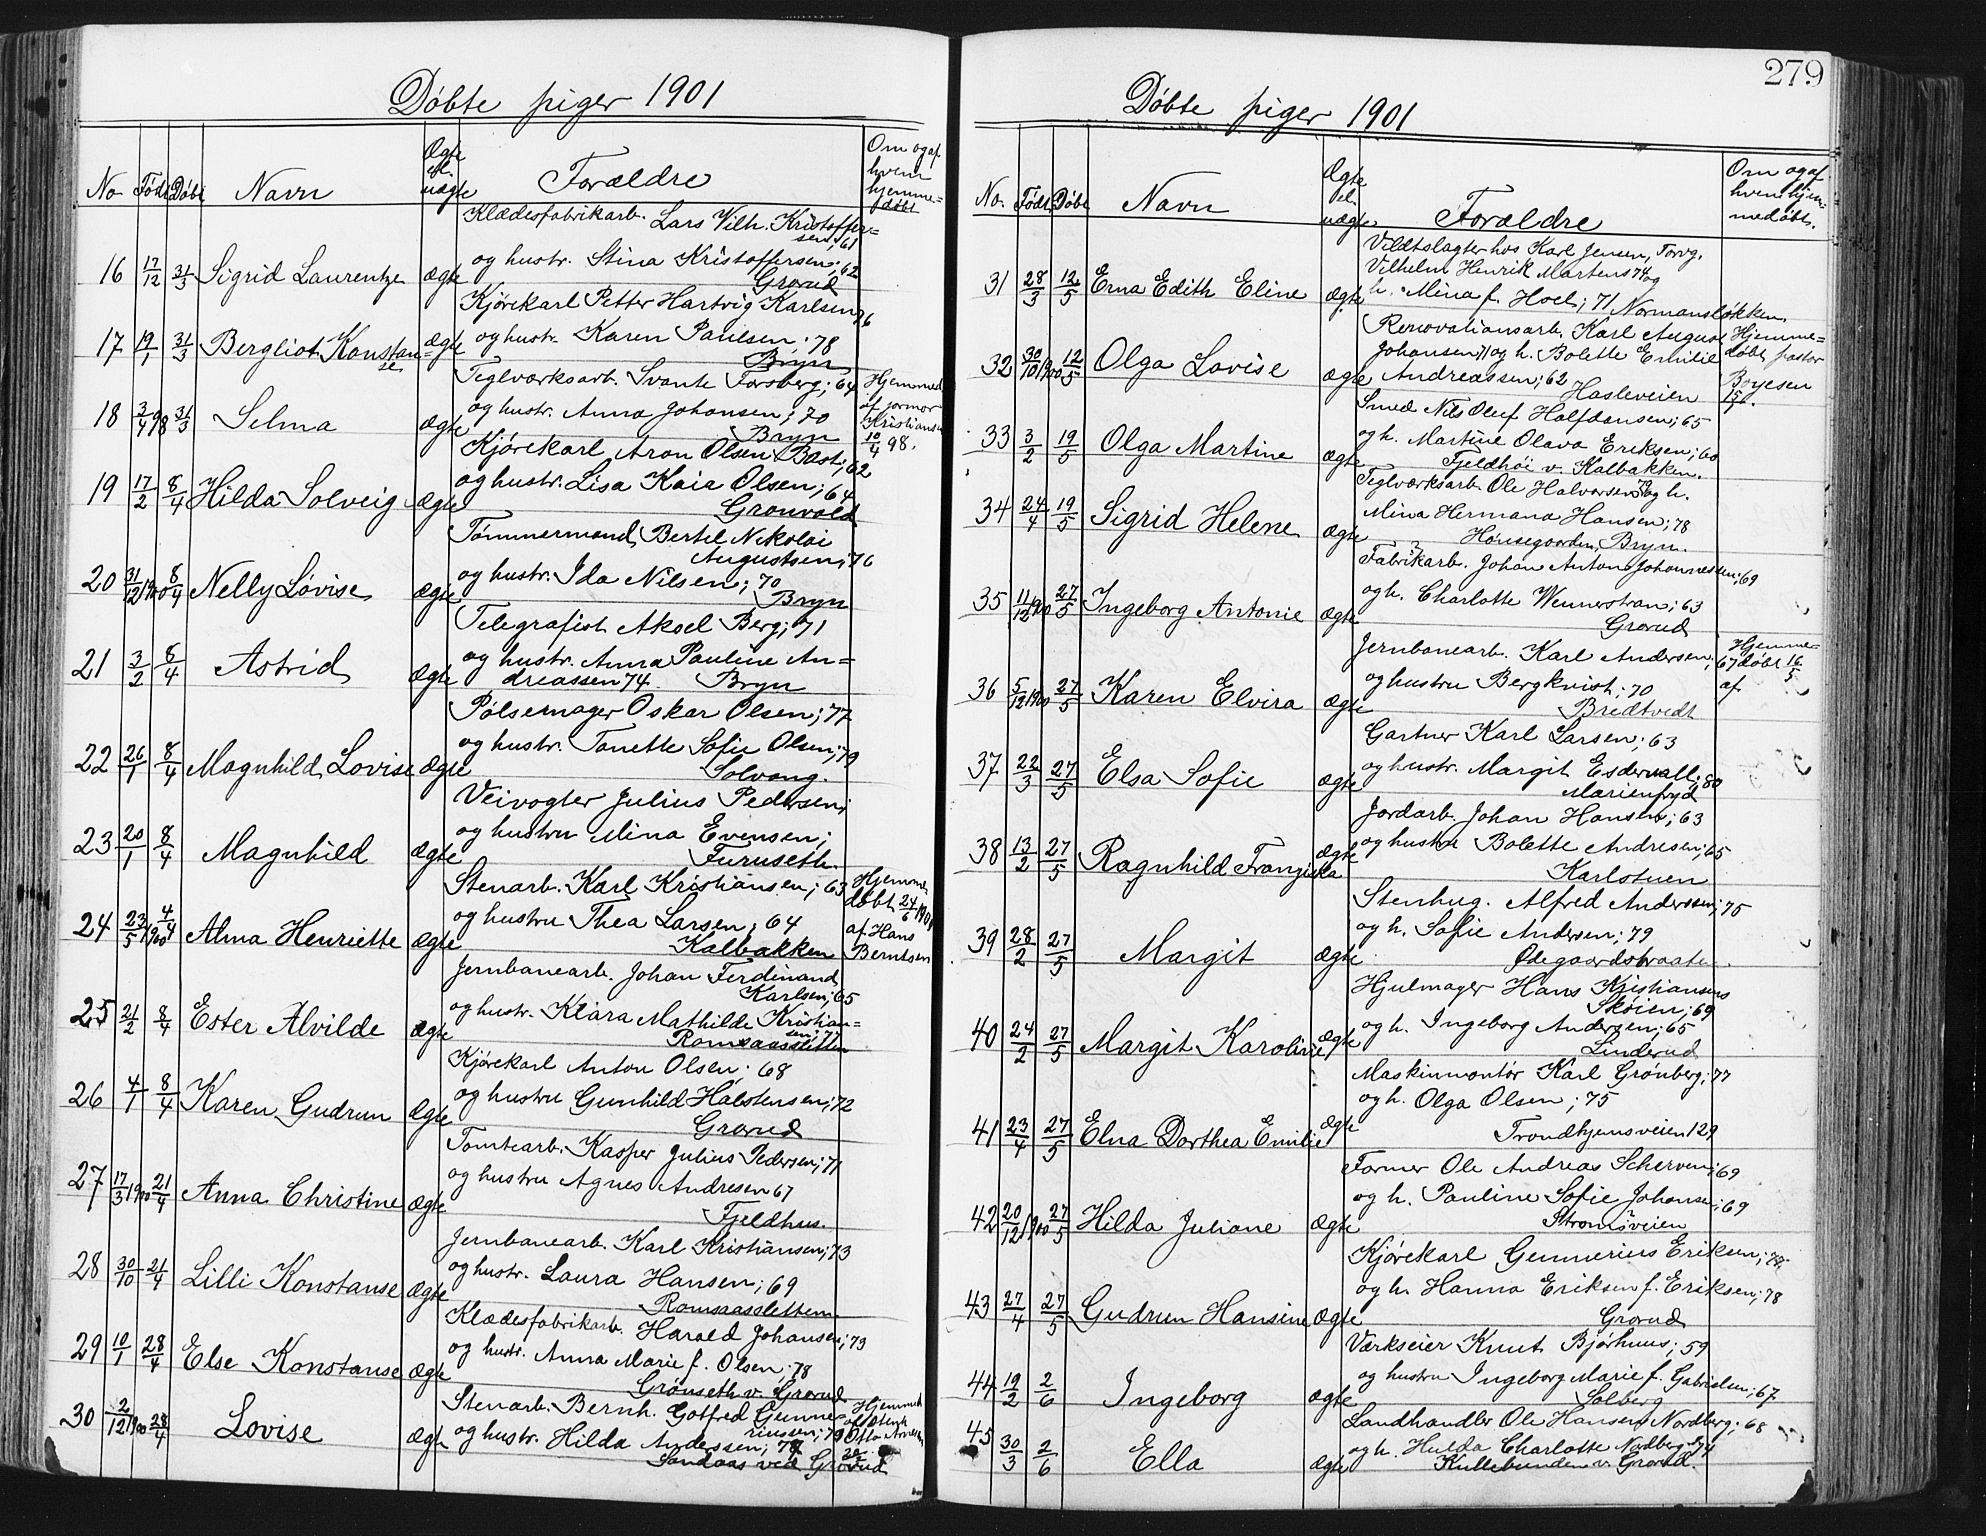 Döbte piger 1901
No Født Døbt Navn Ægte el. uægte Forældre Om og af hvem hjemmedøbt
Klædesfabrikarb. Lars Vilh. Kristoffer=
sen; 61
16 17/12 31/3 Sigrid Laurentze ægte og hustr. Stina Kristoffersen; 62
Grorud
Kjørekarl Petter Hartvig Karlsen 76
17 19/1 31/3 Bergliot Konstan=
se ægte og hustr. Karen Paulsen; 78
Bryn
Teglværksarb. Svante Forsberg; 64
18 3/4 98 31/3 Selma ægte og hustr. Anna Johansen; 70
Bryn
Hjemmed
af jormor
Kristiansen
10/4 98.
Kjørekarl Aron Olsen Bast; 62
19 17/2 8/4 Hilda Solveig ægte og hustr. Lisa Kaia Olsen; 64
Gronvold
Tømmermand Bertel Nikolai
Augustsen; 76
20 31/12 1900 8/4 Nelly Lovise ægte og hustr. Ida Nilsen; 70
Bryn
Telegrafist Aksel Berg; 71
21 3/2 8/4 Astrid ægte og hustr. Anna Pauline An=
dreassen 74. Bryn
Pølsemager Oskar Olsen; 77
22 26/1 8/4 Magnhild Lovise ægte og hustr. Tonette Sofie Olsen; 79
Solvang.
Veivogter Julius Pedersen;
23 20/1 8/4 Magnhild ægte og hustru Mina Evensen;
Furuseth.
Stenarb. Karl Kristiansen; 63
24 23/5 1900 4/4 Alma Henriette ægte og hustru Thea Larsen; 64
Kalbakken
Hjemme
døbt 24/6 1900
af Hans
Berntsen
Jernbanearb. Johan Ferdinand
Karlsen; 65
25 21/2 8/4 Ester Alvilde ægte og hustr. Klara Mathilde Kristian=
sen; 71
Romsaassletten
Kjørekarl Anton Olsen; 68
26 4/1 8/4 Karen Gudrun ægte og hustru Gunhild Halstensen; 72
Grorud
Tomtearb. Kasper Julius Pedersen; 71
27 17/3 1900 21/4 Anna Christine ægte og hustru Agnes Andresen 67
Fjeldhus.
Jernbanearb. Karl Kristiansen; 73
28 30/10 21/4 Lilli Konstanse ægte og hustr. Laura Hansen; 69
Romsaassletten
Klædesfabrikarb. Harald Johansen; 73
29 10/1 28/4 Else Konstanse ægte og hustr. Anna Marie f. Olsen; 78
Grönseth v. Grorud
Stenarb. Bernh. Gotfred Gunne=
riussen; 79
30 2/12 1900 28/4 Lovise ægte og hustr. Hilda Anderssen; 78
Sandaas ved Grorud
Hjemmed
Otto
279
Døbte piger 1901
No. Født Døbt Navn Ægte el. uægte Forældre Om og af hvem hjemmedøbt.
Vildtslagter hos Karl Jensen, Torvg.
Vilhelm Henrik Martens 74 og
31 28/3 12/5 Erna Edith Eline ægte h. Mina f. Hoel; 71 Normansløkken.
Renovationsarb. Karl August
32 30/10 1900 12/5 Olga Lovise ægte Johansen 71 og h. Bolette Emilie
Andreassen; 62
Hasleveien
Hjemme=
døbt pastor
Boyesen
Smed Nils Oluf Halfdansen; 65
33 3/2 19/5 Olga Martine ægte og h. Martine Olava Eriksen; 60
Fjeldhøi v. Kalbakken.
Teglværksarb. Ole Halvorsen 79 og h.
34 24/4 19/5 Sigrid Helene ægte Mina Hermana Hansen; 78
Hönsegaarden, Bryn.
Fabrikarb. Johan Anton Johannessen; 69
35 11/12 1900 27/5 Ingeborg Antonie ægte og h. Charlotte Wennerstran; 63
Grorud
Jernbanearb. Karl Andersen; 67
36 5/12 1900 27/5 Karen Elvira ægte og hustru Bergkvist; 70
Bredtvedt
Hjemme-
døbt 16/5
af
Gartner Karl Larsen; 63
37 22/3 27/5 Elsa Sofie ægte og hustr. Margit Esdervall; 80
Marienfryd
Jordarb. Johan Hansen; 63
38 13/2 27/5 Ragnhild Franziska ægte og hustru Bolette Andresen; 65
Karlstuen
Stenhug. Alfred Anderssen; 75
39 28/2 27/5 Margit ægte og h. Sofie Andersen; 79
Ødegaardsbraaten.
Hjulmager Hans Kristiansens
Skøien; 69
40 24/2 27/5 Margit Karoline ægte og h. Ingeborg Andersen; 65
Linderud
Maskinmontør Karl Grønberg; 77
41 23/4 27/5 Elna Dorthea Emilie ægte og h. Olga Olsen; 75
Trondhjemsveien 129
Former Ole Andreas Scherven; 69
42 20/12 1900 27/5 Hilda Juliane ægte og h. Pauline Sofie Johansen; 69
Strömsveien
Kjørekarl Gunnerius Eriksen; 78
43 27/4 27/5 Gudrun Hansine ægte og h. Hanna Eriksen f. Eriksen; 78
Grorud
Værkseier Knut Bjørhuus; 59
44 19/2 2/6 Ingeborg ægte og hustru Ingeborg Marie f. Gabrielsen; 67
Solberg
Landhandler Ole Hansen Nordberg; 68
45 30/3 2/6 Ella ægte og h. Hulda Charlotte Nordberg 74
Kullebunden v. Grorud.